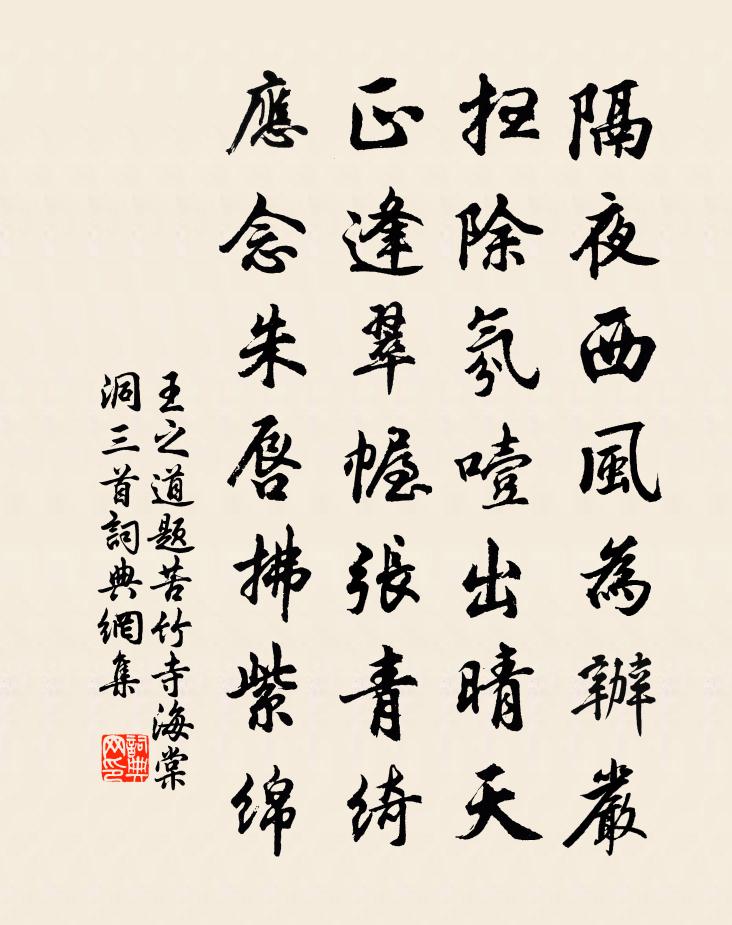 隔夜西風為辦嚴
扫除氛噎出晴天
正逢翠幄張青綺
應念朱唇拂紫綿
王之道题苦竹寺海棠
洞三首詞典網集
詞典
网印